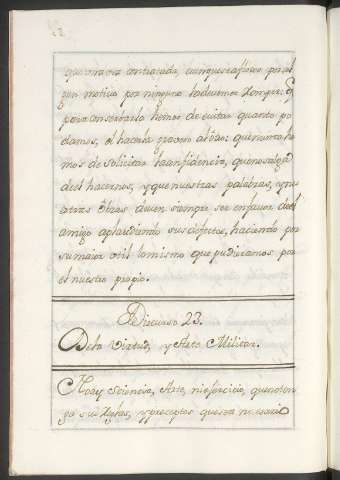 que una vez contraida, aunque [...] por al
gun motivo por ninguno la devemos romper: y
para conservarla hemos de evitar quanto po
damos, el hacerle grave al [...]: que nunca he
mos de solicitar la confidencia, que no salga
de el hacernos, y que nuestras palabras, y nu
estras obras deven siempre ser en favor de el
amigo aplaudiendo sus defectos, haciendo por
su maior util lo mismo que pudieramos por
el nuestro propio.
Discurso 23.
De la Virtud, y Arte Militar.
No ay Sciencia, Arte, ni exercicio, que no ten
ga sus reglas, y preceptos que sea necesario